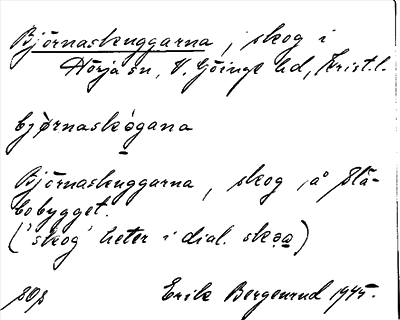 Björnaskuggarna, skog i
Hörja sn, V. Göinge hd, Krist. l.
björnaskògana
Björnaskuggarna, skog på Slä-
bobygget.
('skog' heter i dial. skoa)
Erik Bergenrud 1945.